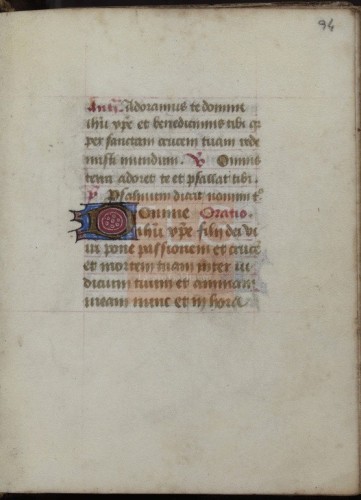 94
Ant. Adoramus te domine
ihu xpe et benedicimus tibi q
per sanctam crucem tuam rede
misti mundum. V Omnis
terra adoret te et psallat tibi.
R Psalmum dicat nomini t°
Domine Oratio.
ihu xpe fili dei vi
ui pone passionem et cruce
et mortem tuam inter iu
dicium tuum et animam
meam nunc et in hora